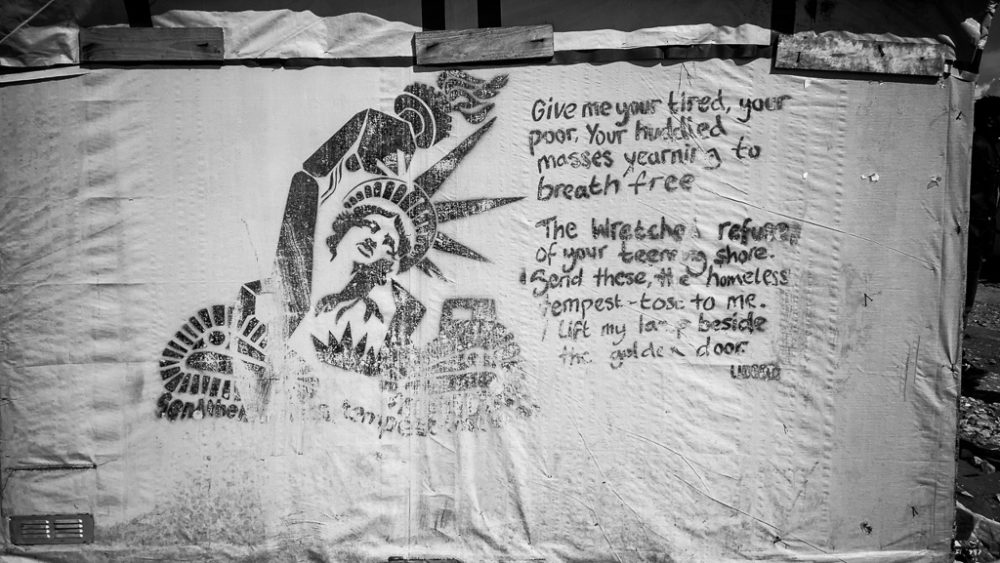 Give me your tired, your
poor, Your huddled
masses yearning to
breath free
The Wretched refuse
of your teeming shore.
Send these, the homeless
tempest-tost to me.
I Lift my lamp beside
the golden door.
tempest